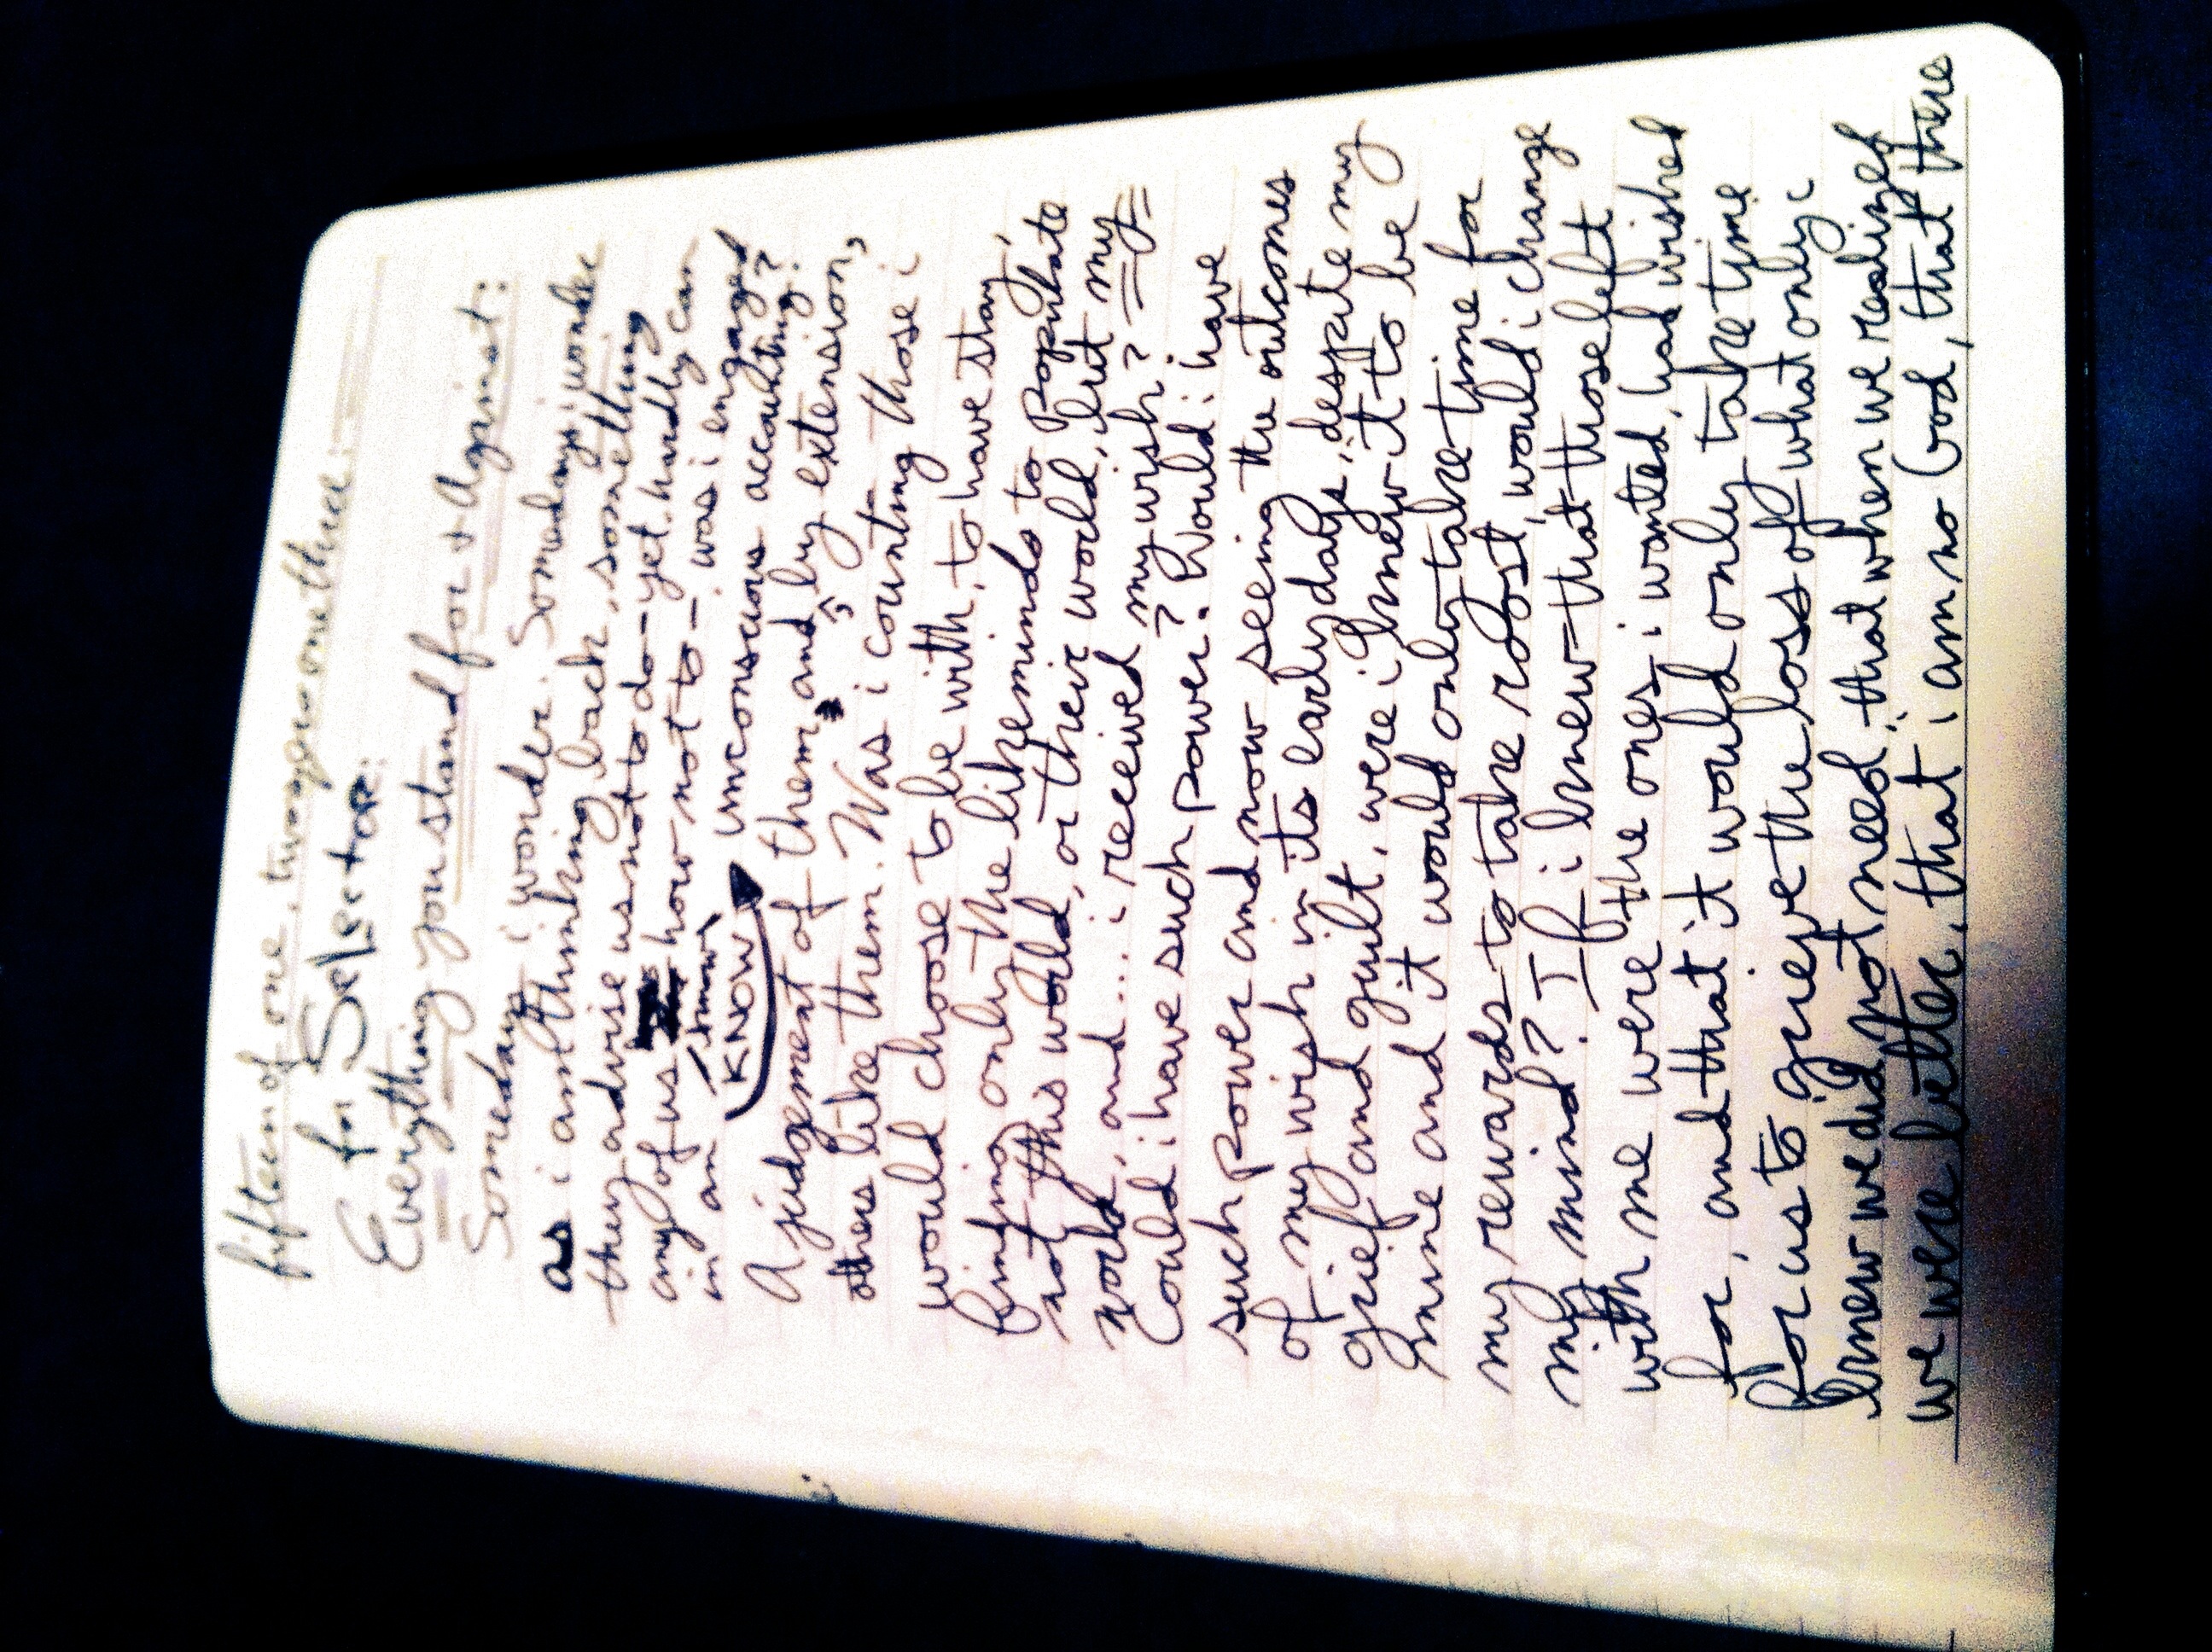 fifteen of one, twozeroonethree:
for Selector:
Everything you stand for + Against:
Someday i wonder. Someday i wonder
as i am thinking back, something
they advise us not to do - yet hardly can
any of us know how not to - was i engaged
in an unconscious accounting?
KNOW
A judgement of them, and, by extension,
others like them. Was i counting those i
would choose to be with, to have stay,
finding only the likeminds to populate
not this world, or their world, but my
world, and... i received my wish?
Could i have such power? Would i have
such power and now seeing the outcomes
of my wish in its early days, despite my
grief and guilt, were i knew it to be
mine and it would only take time for
my rewards to take roost, would i change
my mind? If i knew that those left
with me were the ones i wanted, had wished
for, and that it would only take time
for us to grieve the loss of what only i
knew we did not need, that when we realized
we were better, that i am no God, that there